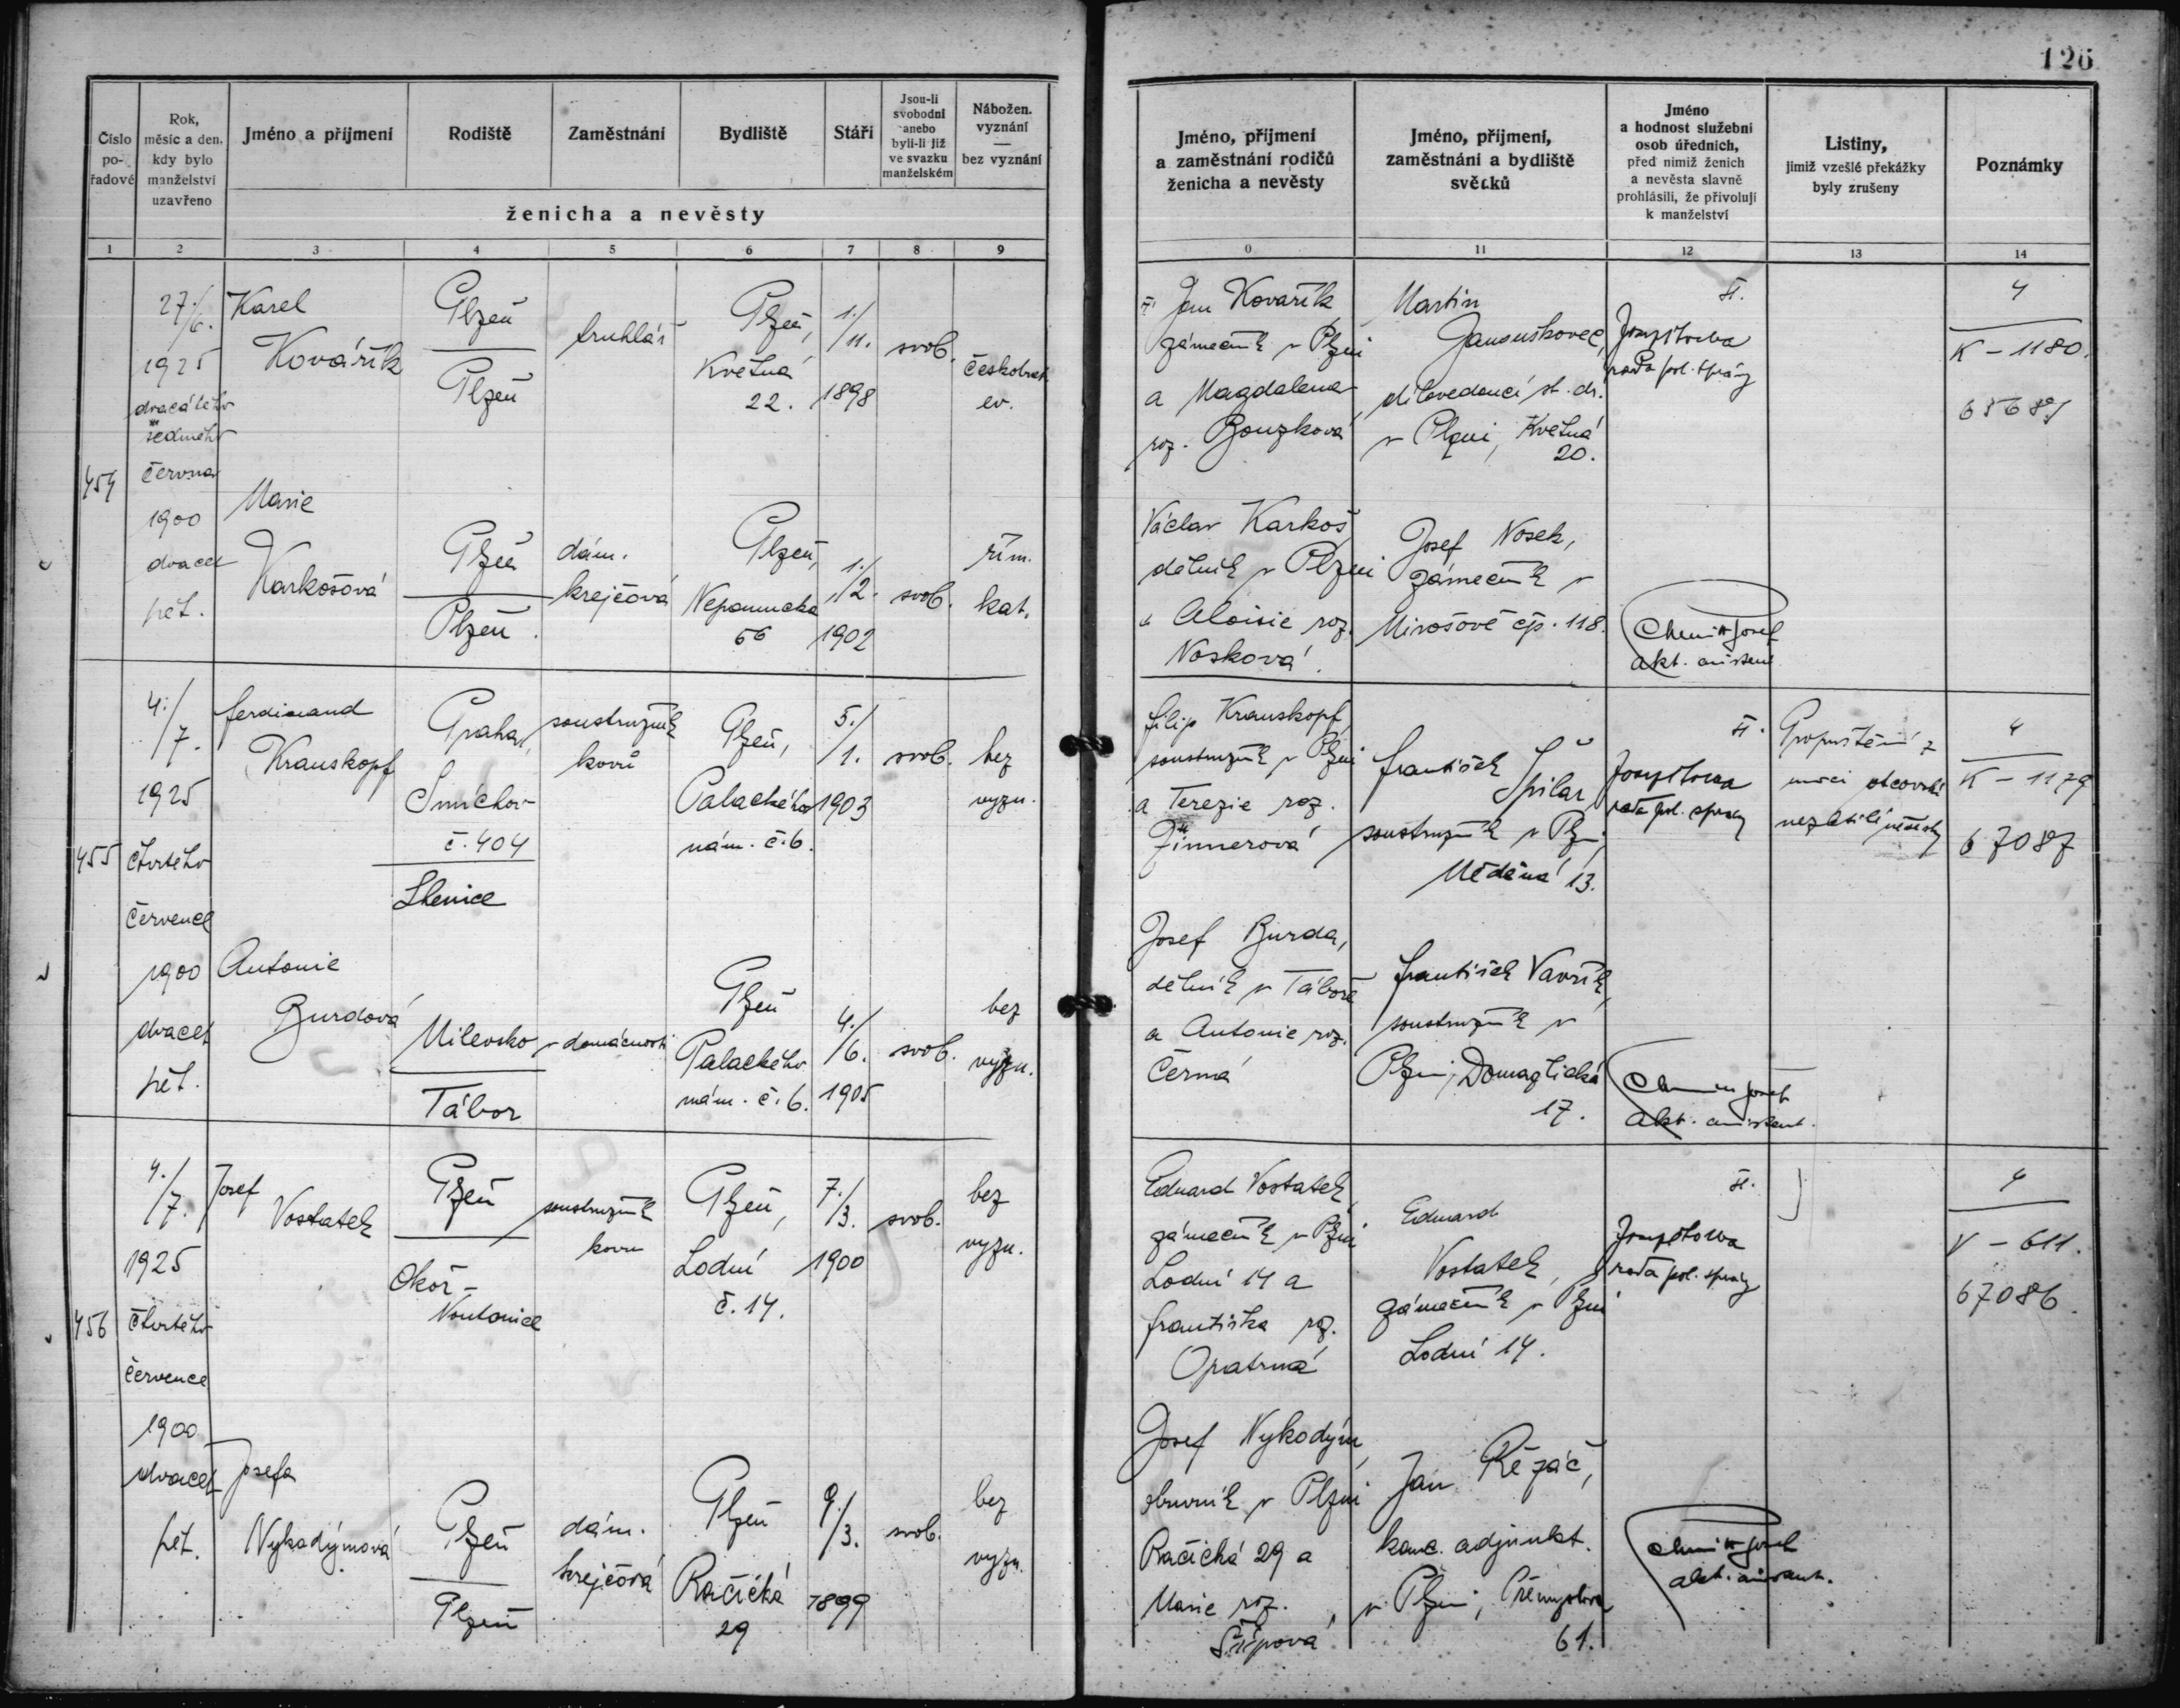 126
Číslo
po-
řadové
Rok,
měsíc a den,
kdy bylo
manželství
uzavřeno
Jméno a příjmení
Rodiště
Zaměstnání
Bydliště
Stáří
Jsou-li
svobodni
anebo
byli-li již
ve svazku
manželském
Nábožen.
vyznání
—
bez vyznání
ženicha a nevěsty
Jméno, příjmení
a zaměstnání rodičů
ženicha a nevěsty
Jméno, příjmení,
zaměstnání a bydliště
svědků
Jméno
a hodnost služební
osob úředních,
před nimiž ženich
a nevěsta slavně
prohlásili, že přivolují
k manželství
Listiny,
jimiž vzešlé překážky
byly zrušeny
Poznámky
1 2 3 4 5 6 7 8 9
0 11 12 13 14
454
27./6.
1925
dvacátého
sedmého
června
1900
dvacet
pět.
Karel
Kovářík
Plzeň
Plzeň
truhlář
Plzeň,
Květná
22.
1./11.
1898
svob.
českobrat.
ev.
Jan Kovařík
zámečník v Plzni
a Magdalena
roz. Bouzková
Martin
Janouškovec,
dílovedoucí st. dr.
v Plzni, Květná
20.
rada pol. správy
4
K – 1180.
65689
Marie
Karkošová
Plzeň
Plzeň.
dám.
krejčová
Plzeň,
Nepomucká
56
1./12.
1902
svob.
řím.
kat.
Václav Karkoš
dělník v Plzni
a Aloisie roz.
Nosková.
Josef Nosek,
zámečník v
Mirošově čp. 118.
Josef
akt. asistent
455
4./7.
1925
čtvrtého
července
1900
dvacet
pět.
Ferdinand
Krauskopf
Praha,
Smíchov
č. 404
Lhenice
soustružník
kovů
Plzeň,
Palackého
nám. č. 6.
5./1.
1903
svob.
bez
vyzn.
Filip Krauskopf,
soustružník v Plzni
a Terezie roz.
Zinnerová
František
Špilar,
soustružník v Plzni,
Měděná 13.
rada pol. správy
Propuštění z
moci otcovské
nezletilé nevěsty
4
K – 1179
67087
Antonie
Burdová
Milevsko
Tábor
v domácnosti
Plzeň
Palackého
nám. č. 6.
4./6.
1905
svob.
bez
vyzn.
Josef Burda,
dělník v Táboře
a Antonie roz.
Černá
František Vavřík,
soustružník v
Plzni, Domažlická
17.
Josef
akt. asistent.
456
4./7.
1925
čtvrtého
července
1900
dvacet
pět.
Josef
Vostatek
Plzeň
Okoř –
Noutonice
soustružník
kovu
Plzeň,
Lodní
č. 14.
7./3.
1900
svob.
bez
vyzn.
Eduard Vostatek,
zámečník v Plzni
Lodní 14 a
Františka roz.
Opatrná
Eduard
Vostatek,
zámečník v Plzni
Lodní 14.
rada pol. správy
4
V – 611.
67086.
Josefa
Nykodýmová
Plzeň
Plzeň
dám.
krejčová
Plzeň
Račická
29
9./3.
1899
svob.
bez
vyzn.
Josef Nykodým,
obuvník v Plzni
Račická 29 a
Marie roz.
Jan Řezáč,
kanc. adjunkt.
v Plzni, Přemyslova
61.
Josef
akt. asistent.